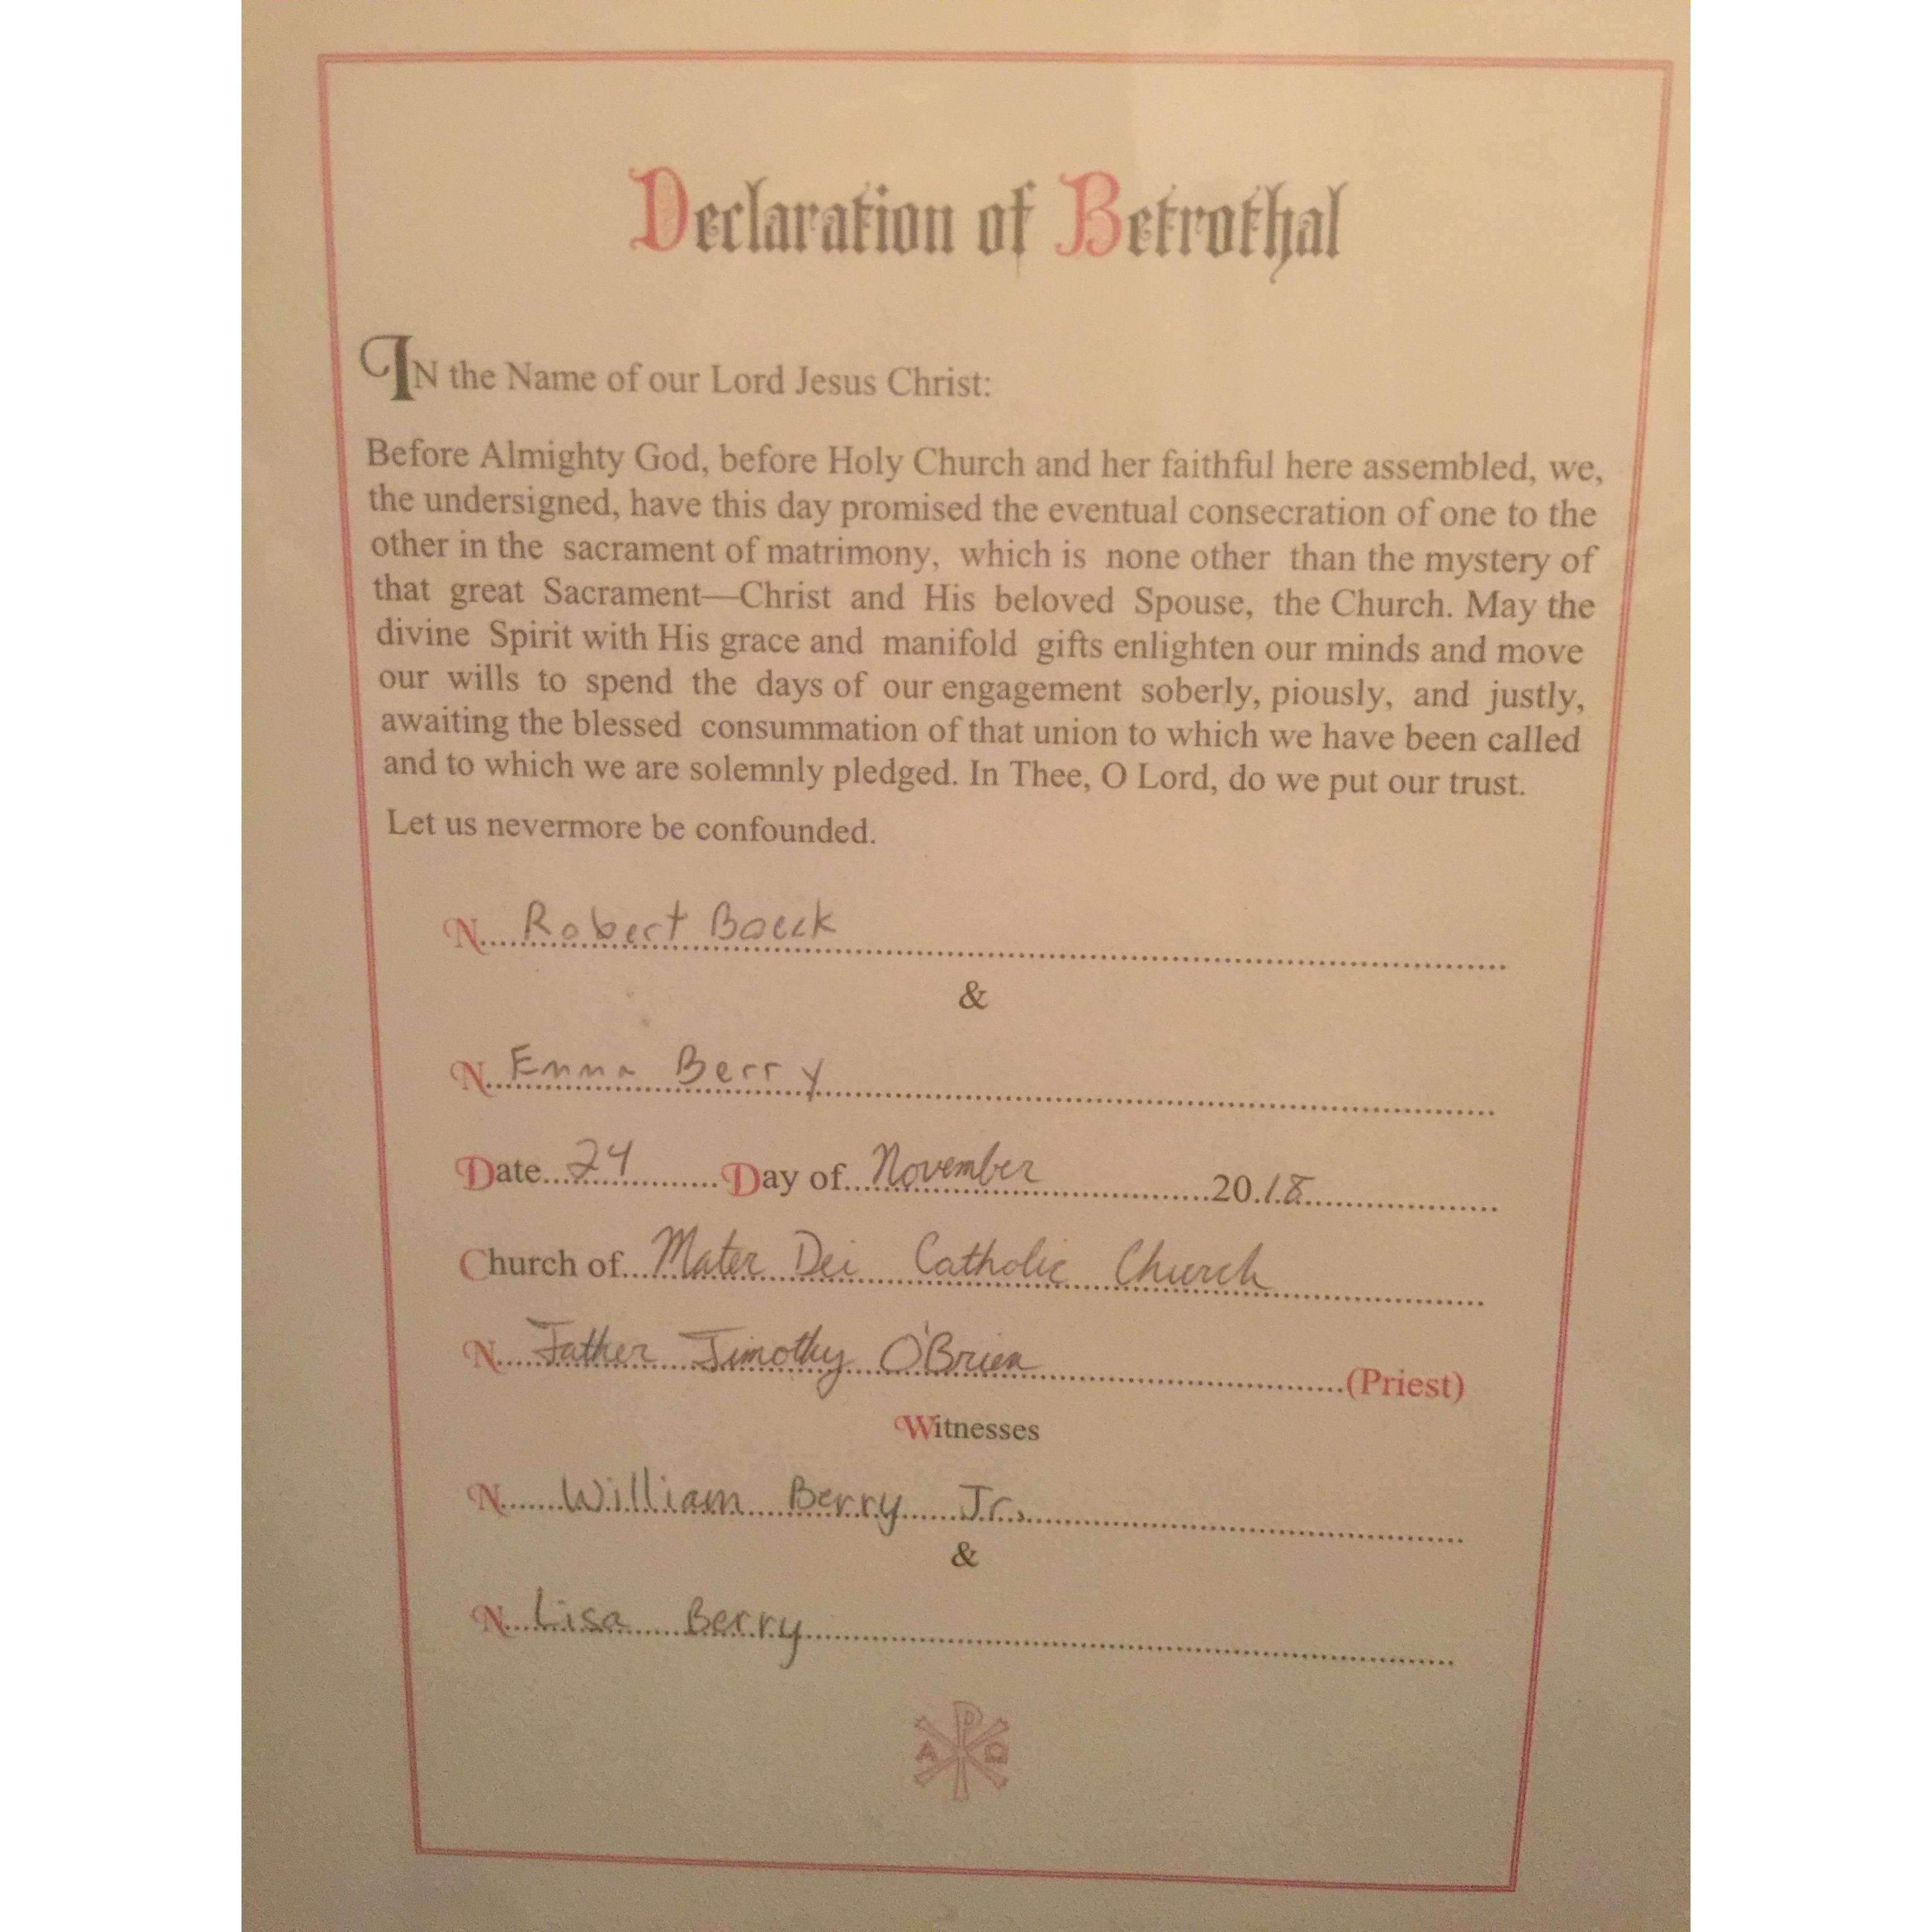 Declaration of Betrothal
IN the Name of our Lord Jesus Christ:
Before Almighty God, before Holy Church and her faithful here assembled, we,
the undersigned, have this day promised the eventual consecration of one to the
other in the sacrament of matrimony, which is none other than the mystery of
that great Sacrament—Christ and His beloved Spouse, the Church. May the
divine Spirit with His grace and manifold gifts enlighten our minds and move
our wills to spend the days of our engagement soberly, piously, and justly,
awaiting the blessed consummation of that union to which we have been called
and to which we are solemnly pledged. In Thee, O Lord, do we put our trust.
Let us nevermore be confounded.
N. Robert Boeck
&
N. Emma Berry
Date 24 Day of November 2018
Church of Mater Dei Catholic Church
N. Father Timothy O'Brien (Priest)
Witnesses
N. William Berry Jr.
&
N. Lisa Berry
Α Ρ Ω